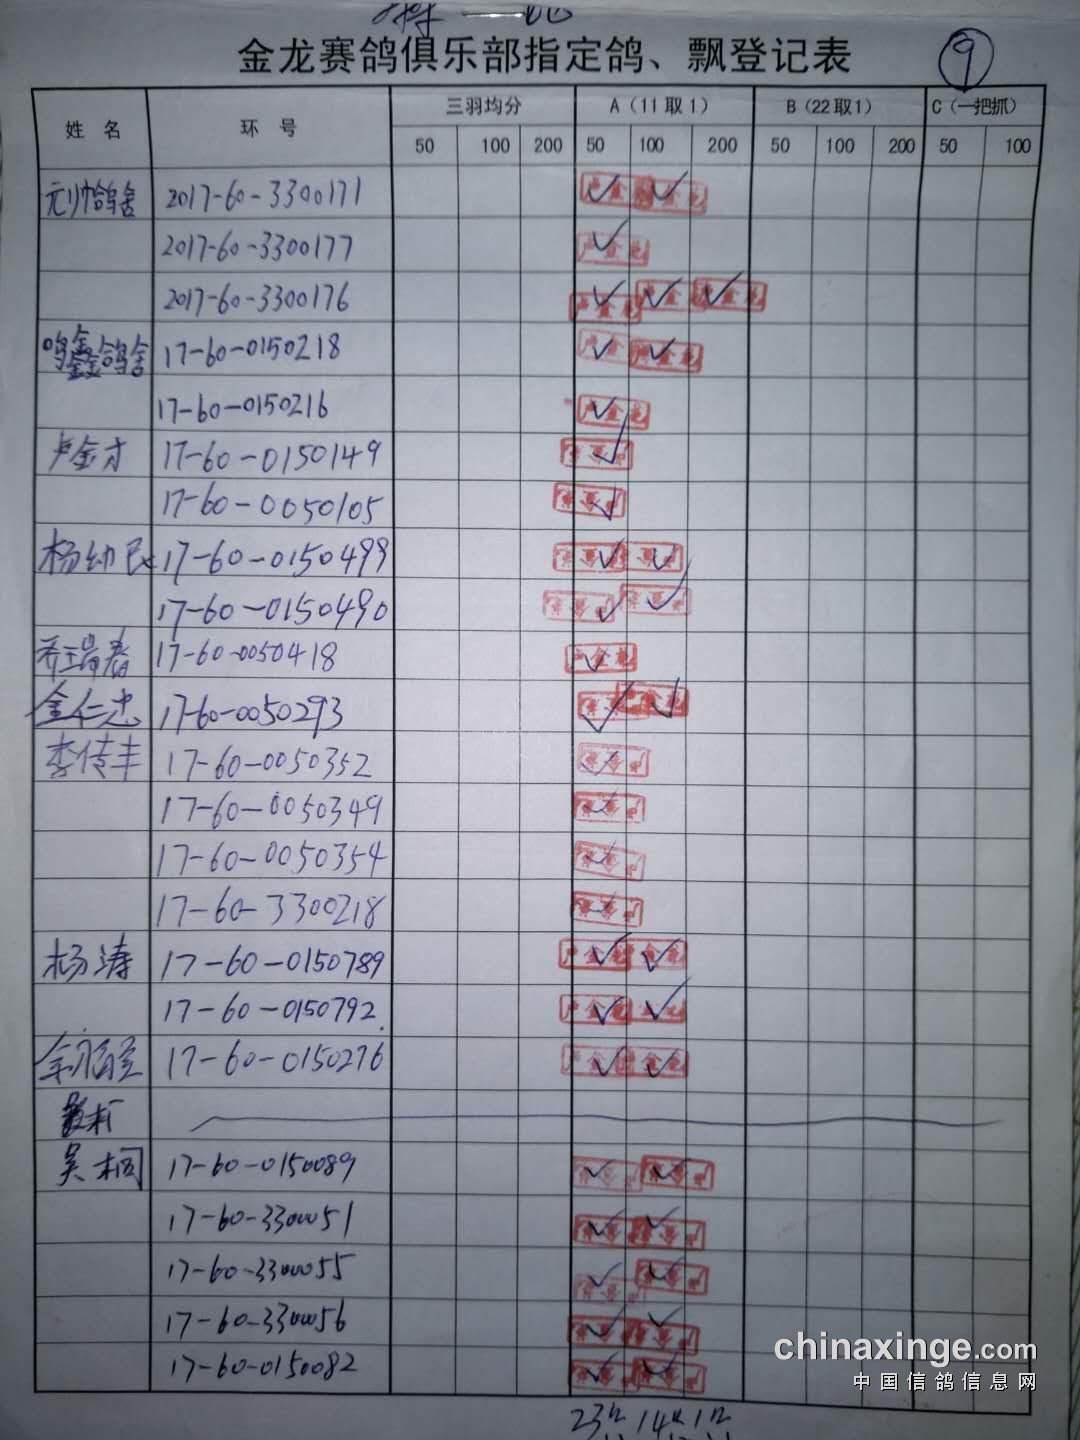 金龙赛鸽俱乐部指定鸽、飘登记表
⑨
姓 名 环 号 三羽均分 A（11取1） B（22取1） C（一把抓）
50 100 200 50 100 200 50 100 200 50 100
元帅鸽舍 2017-60-3300171
2017-60-3300177
2017-60-3300176
鸣鑫鸽舍 17-60-0150218
17-60-0150216
卢金才 17-60-0150149
17-60-0050105
杨幼民 17-60-0150499
17-60-0150490
乔瑞春 17-60-0050418
金仁忠 17-60-0050293
李传丰 17-60-0050352
17-60-0050349
17-60-0050354
17-60-3300218
杨涛 17-60-0150789
17-60-0150792
17-60-0150276
吴桐 17-60-0150089
17-60-3300051
17-60-3300055
17-60-3300056
17-60-0150082
chinaxinge.com
中国信鸽信息网